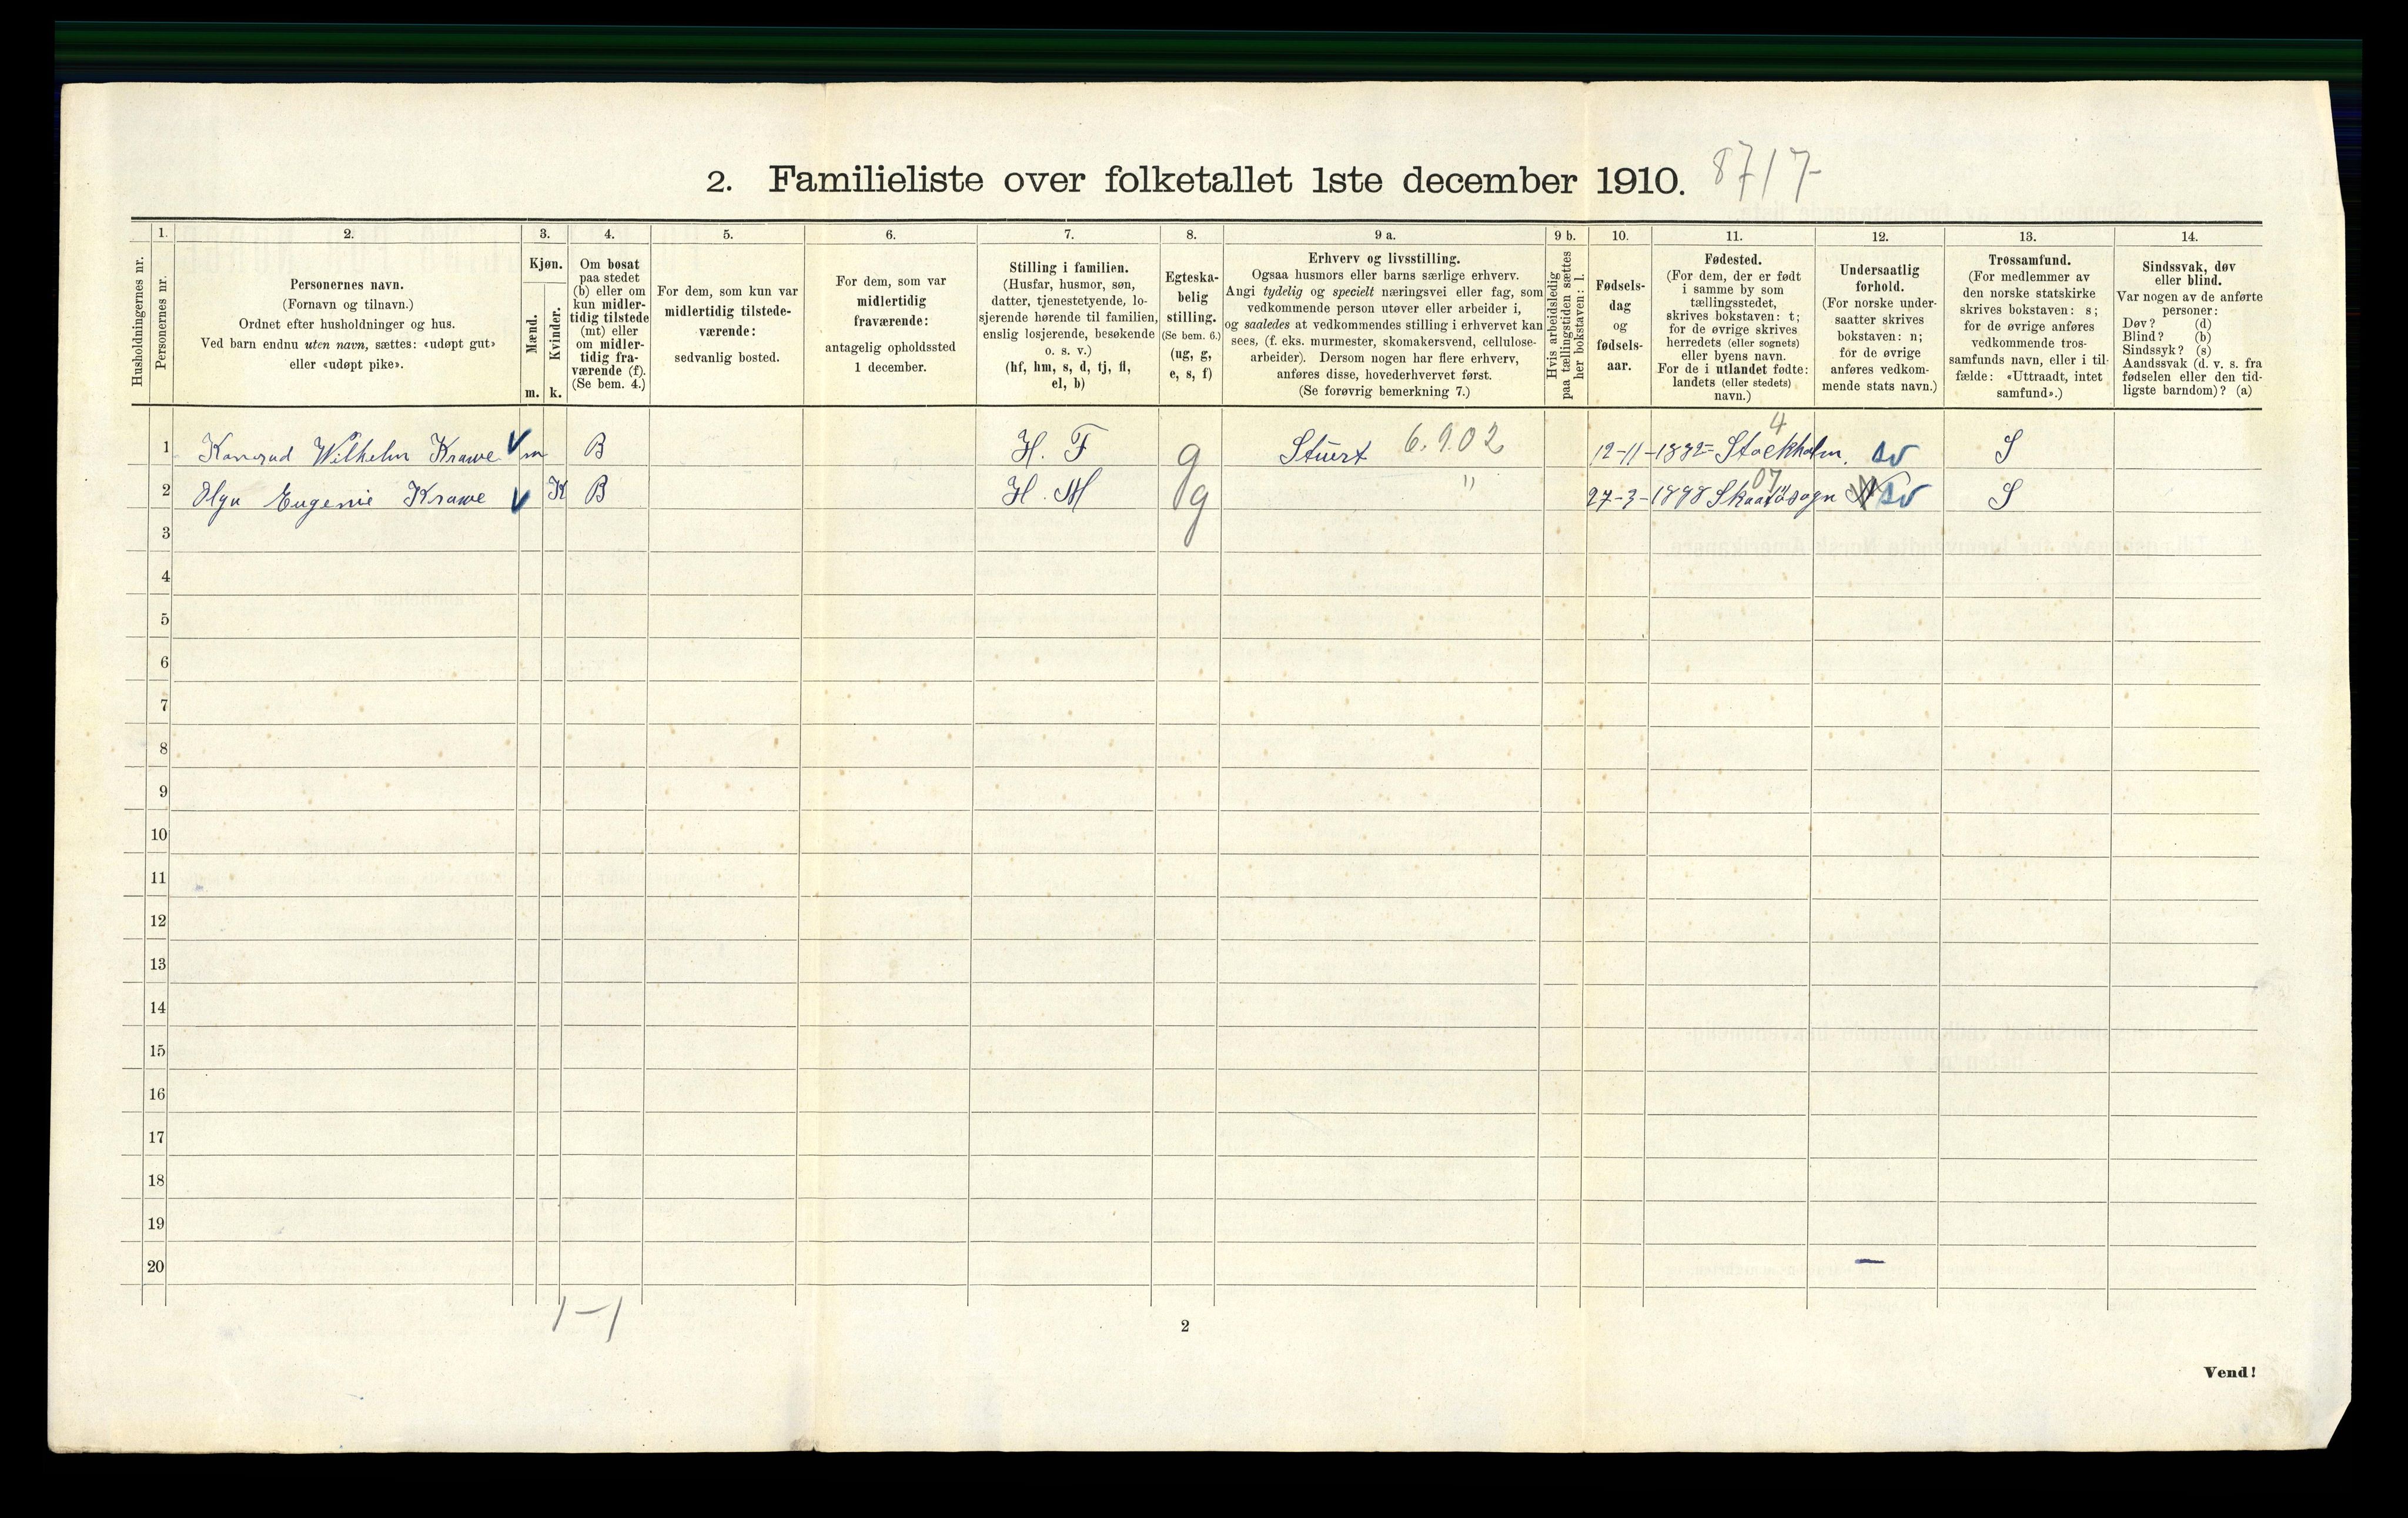 2. Familieliste over folketallet 1ste december 1910. 8717-
Husholdningernes nr.
1.
Personernes nr.
2.
Personernes navn.
(Fornavn og tilnavn.)
Ordnet efter husholdninger og hus.
Ved barn endnu uten navn, sættes: «udøpt gut»
eller «udøpt pike».
3.
Kjøn.
Mænd.
m.
Kvinder.
k.
4.
Om bosat
paa stedet
(b) eller om
kun midler-
tidig tilstede
(mt) eller
om midler-
tidig fra-
værende (f).
(Se bem. 4.)
5.
For dem, som kun var
midlertidig tilstede-
værende:
sedvanlig bosted.
6.
For dem, som var
midlertidig
fraværende:
antagelig opholdssted
1 december.
7.
Stilling i familien.
(Husfar, husmor, søn,
datter, tjenestetyende, lo-
sjerende hørende til familien,
enslig losjerende, besøkende
o. s. v.)
(hf, hm, s, d, tj, fl,
el, b)
8.
Egteska-
belig
stilling.
(Se bem. 6.)
(ug, g,
e, s, f)
9 a.
Erhverv og livsstilling.
Ogsaa husmors eller barns særlige erhverv.
Angi tydelig og specielt næringsvei eller fag, som
vedkommende person utøver eller arbeider i,
og saaledes at vedkommendes stilling i erhvervet kan
sees, (f. eks. murmester, skomakersvend, cellulose-
arbeider). Dersom nogen har flere erhverv,
anføres disse, hovederhvervet først.
(Se forøvrig bemerkning 7.)
9 b.
Hvis arbeidsledig
paa tællingstiden sættes
her bokstaven: l.
10.
Fødsels-
dag
og
fødsels-
aar.
11.
Fødested.
(For dem, der er født
i samme by som
tællingsstedet,
skrives bokstaven: t;
for de øvrige skrives
herredets (eller sognets)
eller byens navn.
For de i utlandet fødte:
landets (eller stedets)
navn.)
12.
Undersaatlig
forhold.
(For norske under-
saatter skrives
bokstaven: n;
for de øvrige
anføres vedkom-
mende stats navn.)
13.
Trossamfund.
(For medlemmer av
den norske statskirke
skrives bokstaven: s;
for de øvrige anføres
vedkommende tros-
samfunds navn, eller i til-
fælde: «Uttraadt, intet
samfund».)
14.
Sindssvak, døv
eller blind.
Var nogen av de anførte
personer:
Døv? (d)
Blind? (b)
Sindssyk? (s)
Aandssvak (d. v. s. fra
fødselen eller den tid-
ligste barndom)? (a)
4
1 Konrad Wilhelm Krawe v m B H. F g Stuert 6.9.02 12-11-1882- Stockholm. sv S
07
2 Olga Eugenie Krawe v K B H. M g " 27-3-1898 Skaatøsogn N sv S
3
4
5
6
7
8
9
10
11
12
13
14
15
16
17
18
19
20
1-1
2
Vend!